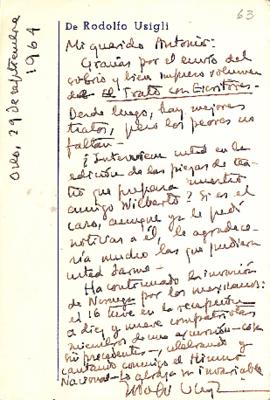 63
De Rodolfo Usigli
Oslo, 29 de septiembre
1964
Mi querido Antonio:
Gracias por el envío del
sobrio y bien impreso volumen
de El Trato con Escritores.
Desde luego, hay mejores
tratos, pero los peores no
faltan.
¿Interviene usted en la
edición de las piezas de tea-
tro que prepara nuestro
amigo Wilberto? Si es el
caso, aunque ya le pedí
noticias a él, le agradece-
ría mucho las que pudiera
usted darme.
Ha continuado la invasión
de Noruega por los mexicanos:
el 16 tuve en la recepción
a diez y nueve compatriotas
miembros de una excursión—cosa
sin precedentes—, celebrando y
cantando conmigo el Himno
Nacional. Lo abraza su invariable
Rodolfo Usigli